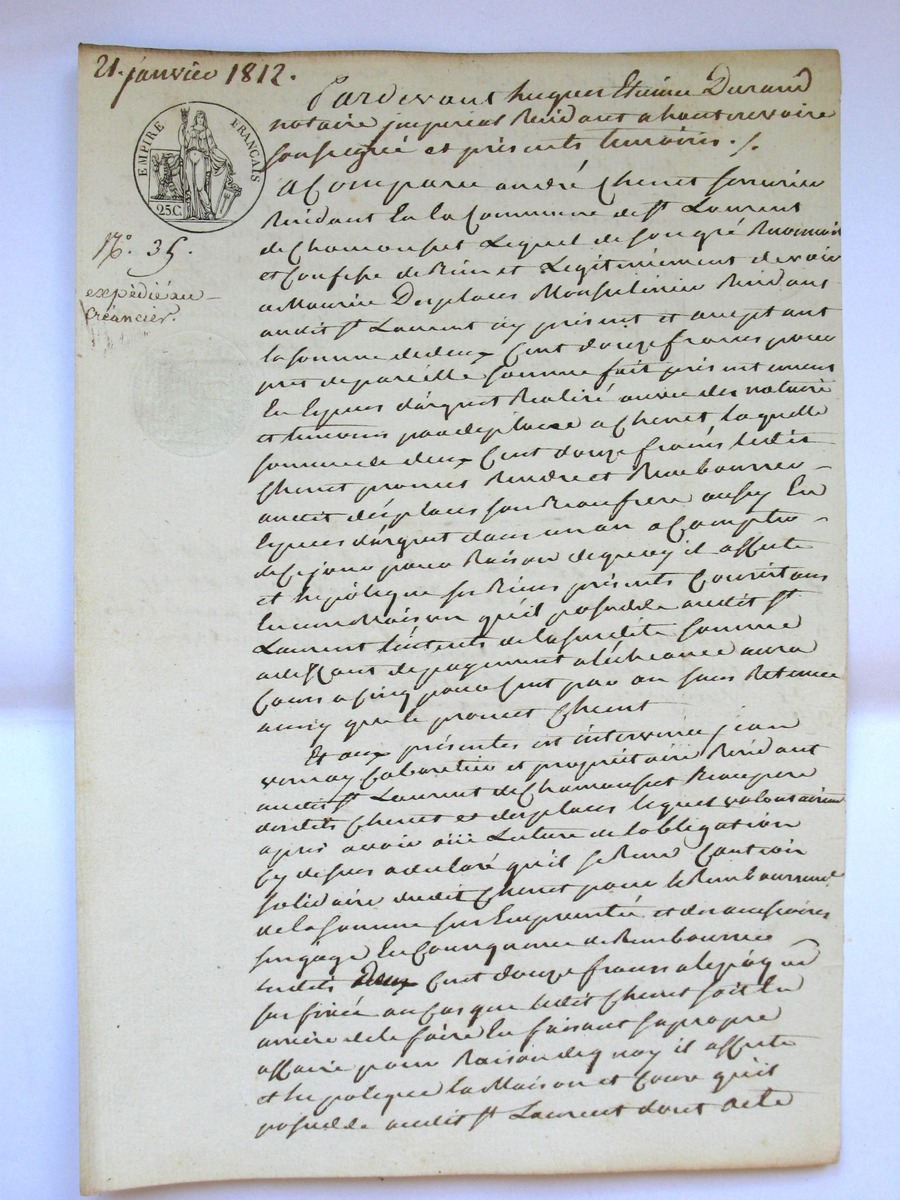 21. janvier 1812.
EMPIRE FRANÇAIS
25C.
N.° 35.
expédié au
Créancier.
Pardevant hugues Etienne Durand
notaire imperial Residant a haute rivoire
soussigné et présents temoins ./.
a Comparu andré Chenet serrurier
Residant en la Commune de st Laurent
de Chamousset Lequel de son gré Reconnoit
et Confesse de bien et Legitimement devoir
a Maurice Desplaces Mousselinier Residant
audit st Laurent icy présent et acceptant
la somme de deux Cent douze francs pour
pret de pareille somme fait présentement
En Especes d'argent Realisé a vue des notaire
et temoins par desplaces a Chenet laquelle
somme de deux Cent douze francs ledit
Chenet promet Rendre et Rembourser
audit desplaces son Beaufrere aussy En
Especes d'argent dans un an a Compter
de Ce jour pour Raison de quoy il affecte
et hipotéque ses Biens présents Consistans
En une Maison qu'il possedde audit st
Laurent l'intérets de la susdite somme
a deffaut de payement a l'écheance aura
Cours a Cinq pour Cent par an sans Retenue
ainsy que le promet Chenet
Et aux présentes est intervenu jean
vernay Cabaretier et propriétaire Residant
audit st Laurent de Chamousset Beaupere
desdits Chenet et desplaces lequel volontairement
après avoir ouï Lecture de l'obligation
Cy dessus a declaré qu'il se Rend Caution
solidaire dudit Chenet pour le Remboursement
de la somme sus Empruntée et des accessoires
s'engage En Consequence de Rembourser
lesdits Deux Cent douze francs a l'epoque
sus fixée au Cas que ledit Chenet soit En
arriere de le faire En faisant sa propre
affaire pour Raison de quoy il affecte
et hipoteque la Maison et Cour qu'il
possedde audit st Laurent dont acte